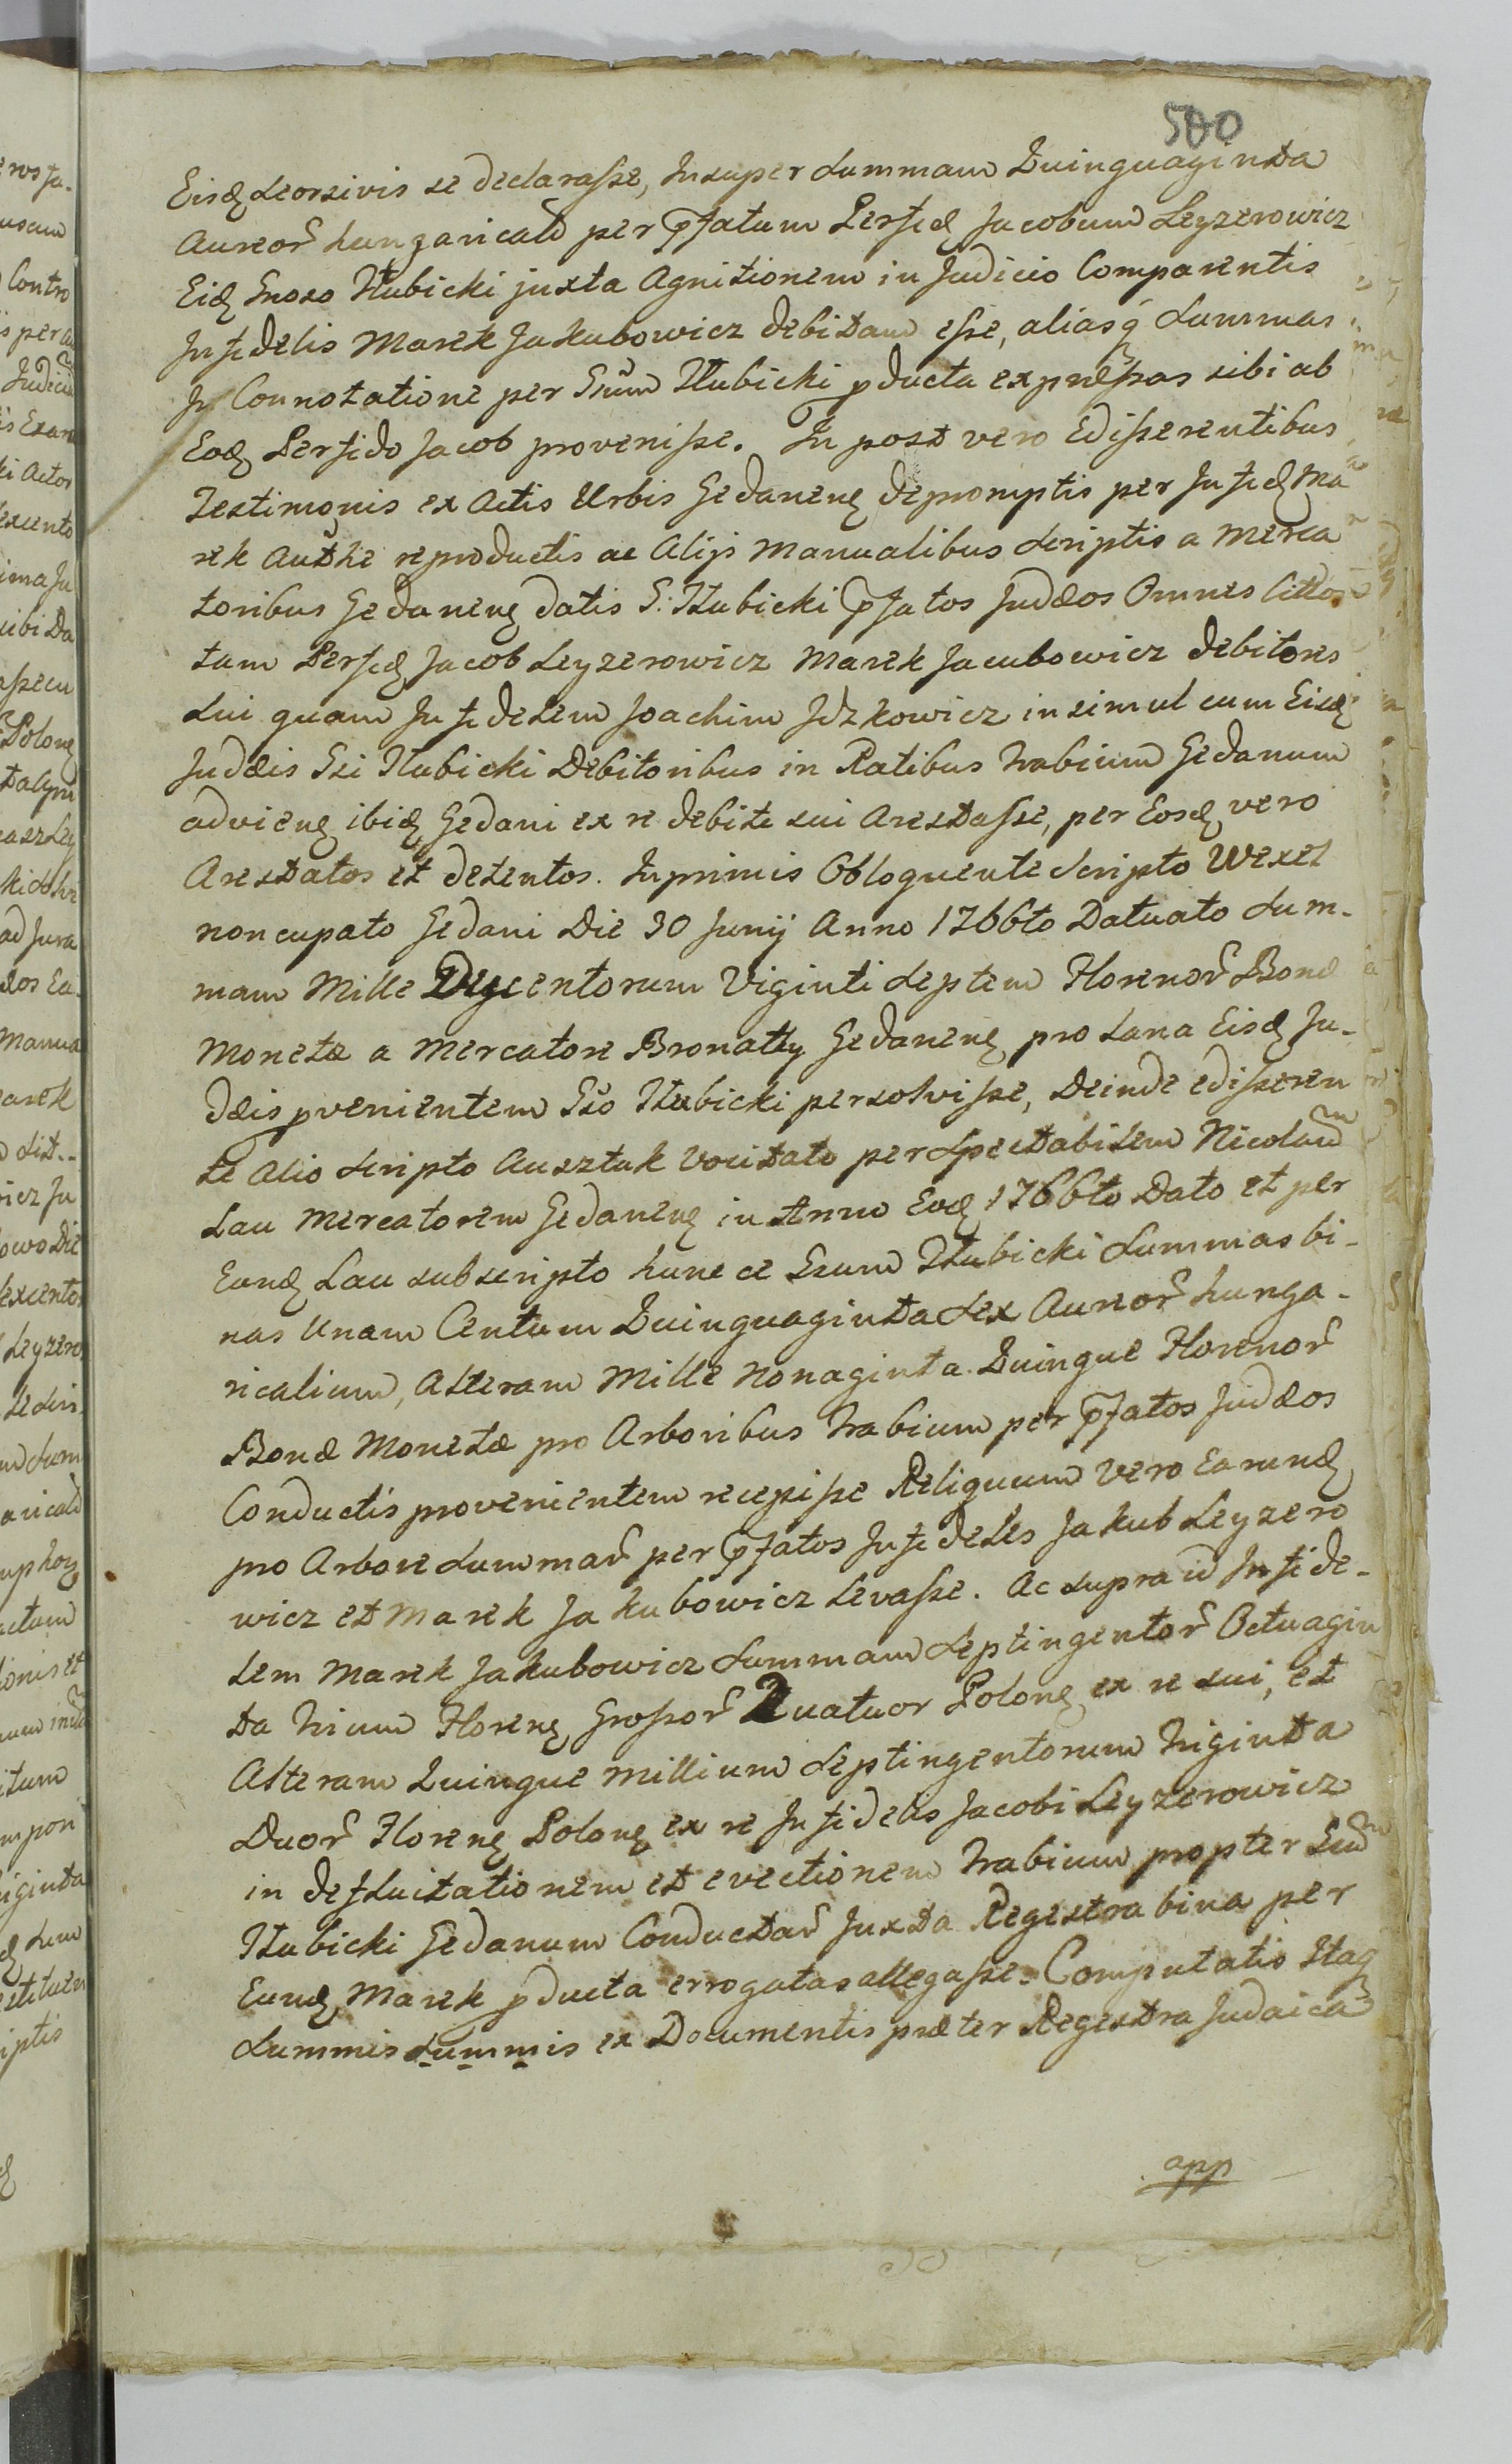 500
Eisdę seorsivis se declarasse, Insuper Summam Quinquaginta
Aureor̃ hungarical̃ per p̃fatum Perfidę Jacobum Leyzerowicz
Eidę Gnoso Hłubicki juxta Agnitionem in Judicio Comparentis
Infidelis Marek Jakubowicz debitam esse, aliasq́ Summas
In Connotatione per Gsum Hłubicki pducta expressas sibi ab
Eodę Perfido Jacob provenisse. In post vero Edisserentibus
Testimonis ex Actis Urbis Gedanenę depromptis per Infidę Ma
rek Authce reproductis ac Alijs Manualibus Scriptis a Merca
toribus Gedanenę datis G: Hłubicki p̃fatos Judæos Omnes Cittos
tam Perfidę Jacob Leyzerowicz Marek Jacubowicz debitores
Sui quam Infidelem Joachim Idzkowicz insimul cum Eisdę
Judæis Gsi Hłubicki Debitoribus in Ratibus trabium Gedanum
advienę ibidę Gedani ex re debiti sui Arestasse, per Eosdę vero
Arestatos et detentos. Inprimis Obloquente Scripto Wexel
noncupato Gedani Die 30 Junij Anno 1766to Datuato Sum-
mam Mille Ducentorum Viginti Septem Florenor̃ Bonæ
Monetæ a Mercatore Bronatty Gedanenę pro Lana Eisdę Ju-
dæis pvenientem Gso Hłubicki persolvisse, Deinde edisseren
te Alio Scripto Ausztuk vocitato per Spectabilem Nicolaum
Lau Mercatorem Gedanenę in Anno Eodę 1766to Dato et per
Eundę Lau subscripto hunc ce Gsum Hłubicki Summas bi-
nas Unam Centum Quinquaginta Sex Aureor̃ hunga-
ricalium, Alteram Mille Nonaginta Quinque Florenor̃
Bonæ Monetæ pro Arboribus trabium per p̃fatos Judæos
Conductis provenientem recepisse Reliquum vero Earundę
pro Arbore Summar̃ per p̃fatos Infideles Jakub Leyzero
wicz et Marek Jakubowicz Levasse. Ac supra id Infide-
lem Marek Jakubowicz Summam Septingentor̃ Octuagin
ta trium Florenę Grossor̃ Quatuor Polonę ex re sui, et
Alteram Quinque Millium Septingentorum triginta
Duor̃ Florenę Polonę ex re Infidelis Jacobi Leyzerowicz
in defluitationem et evectionem trabium propter Gsum
Hłubicki Gedanum Conductar̃ Juxta Regestra bina per
Eundę Marek pducta errogatas allegasse. Computatis Itaq
Summis summis ex Documentis præter Regestra Judaica
app